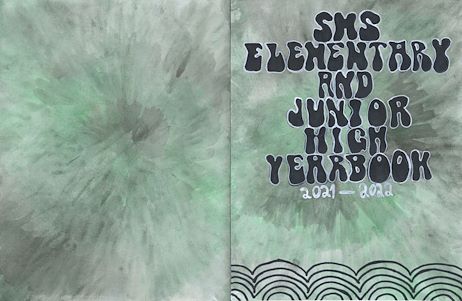 SMS
ELEMENTARY
AND
JUNIOR
HIGH
YEARBOOK
2021 — 2022